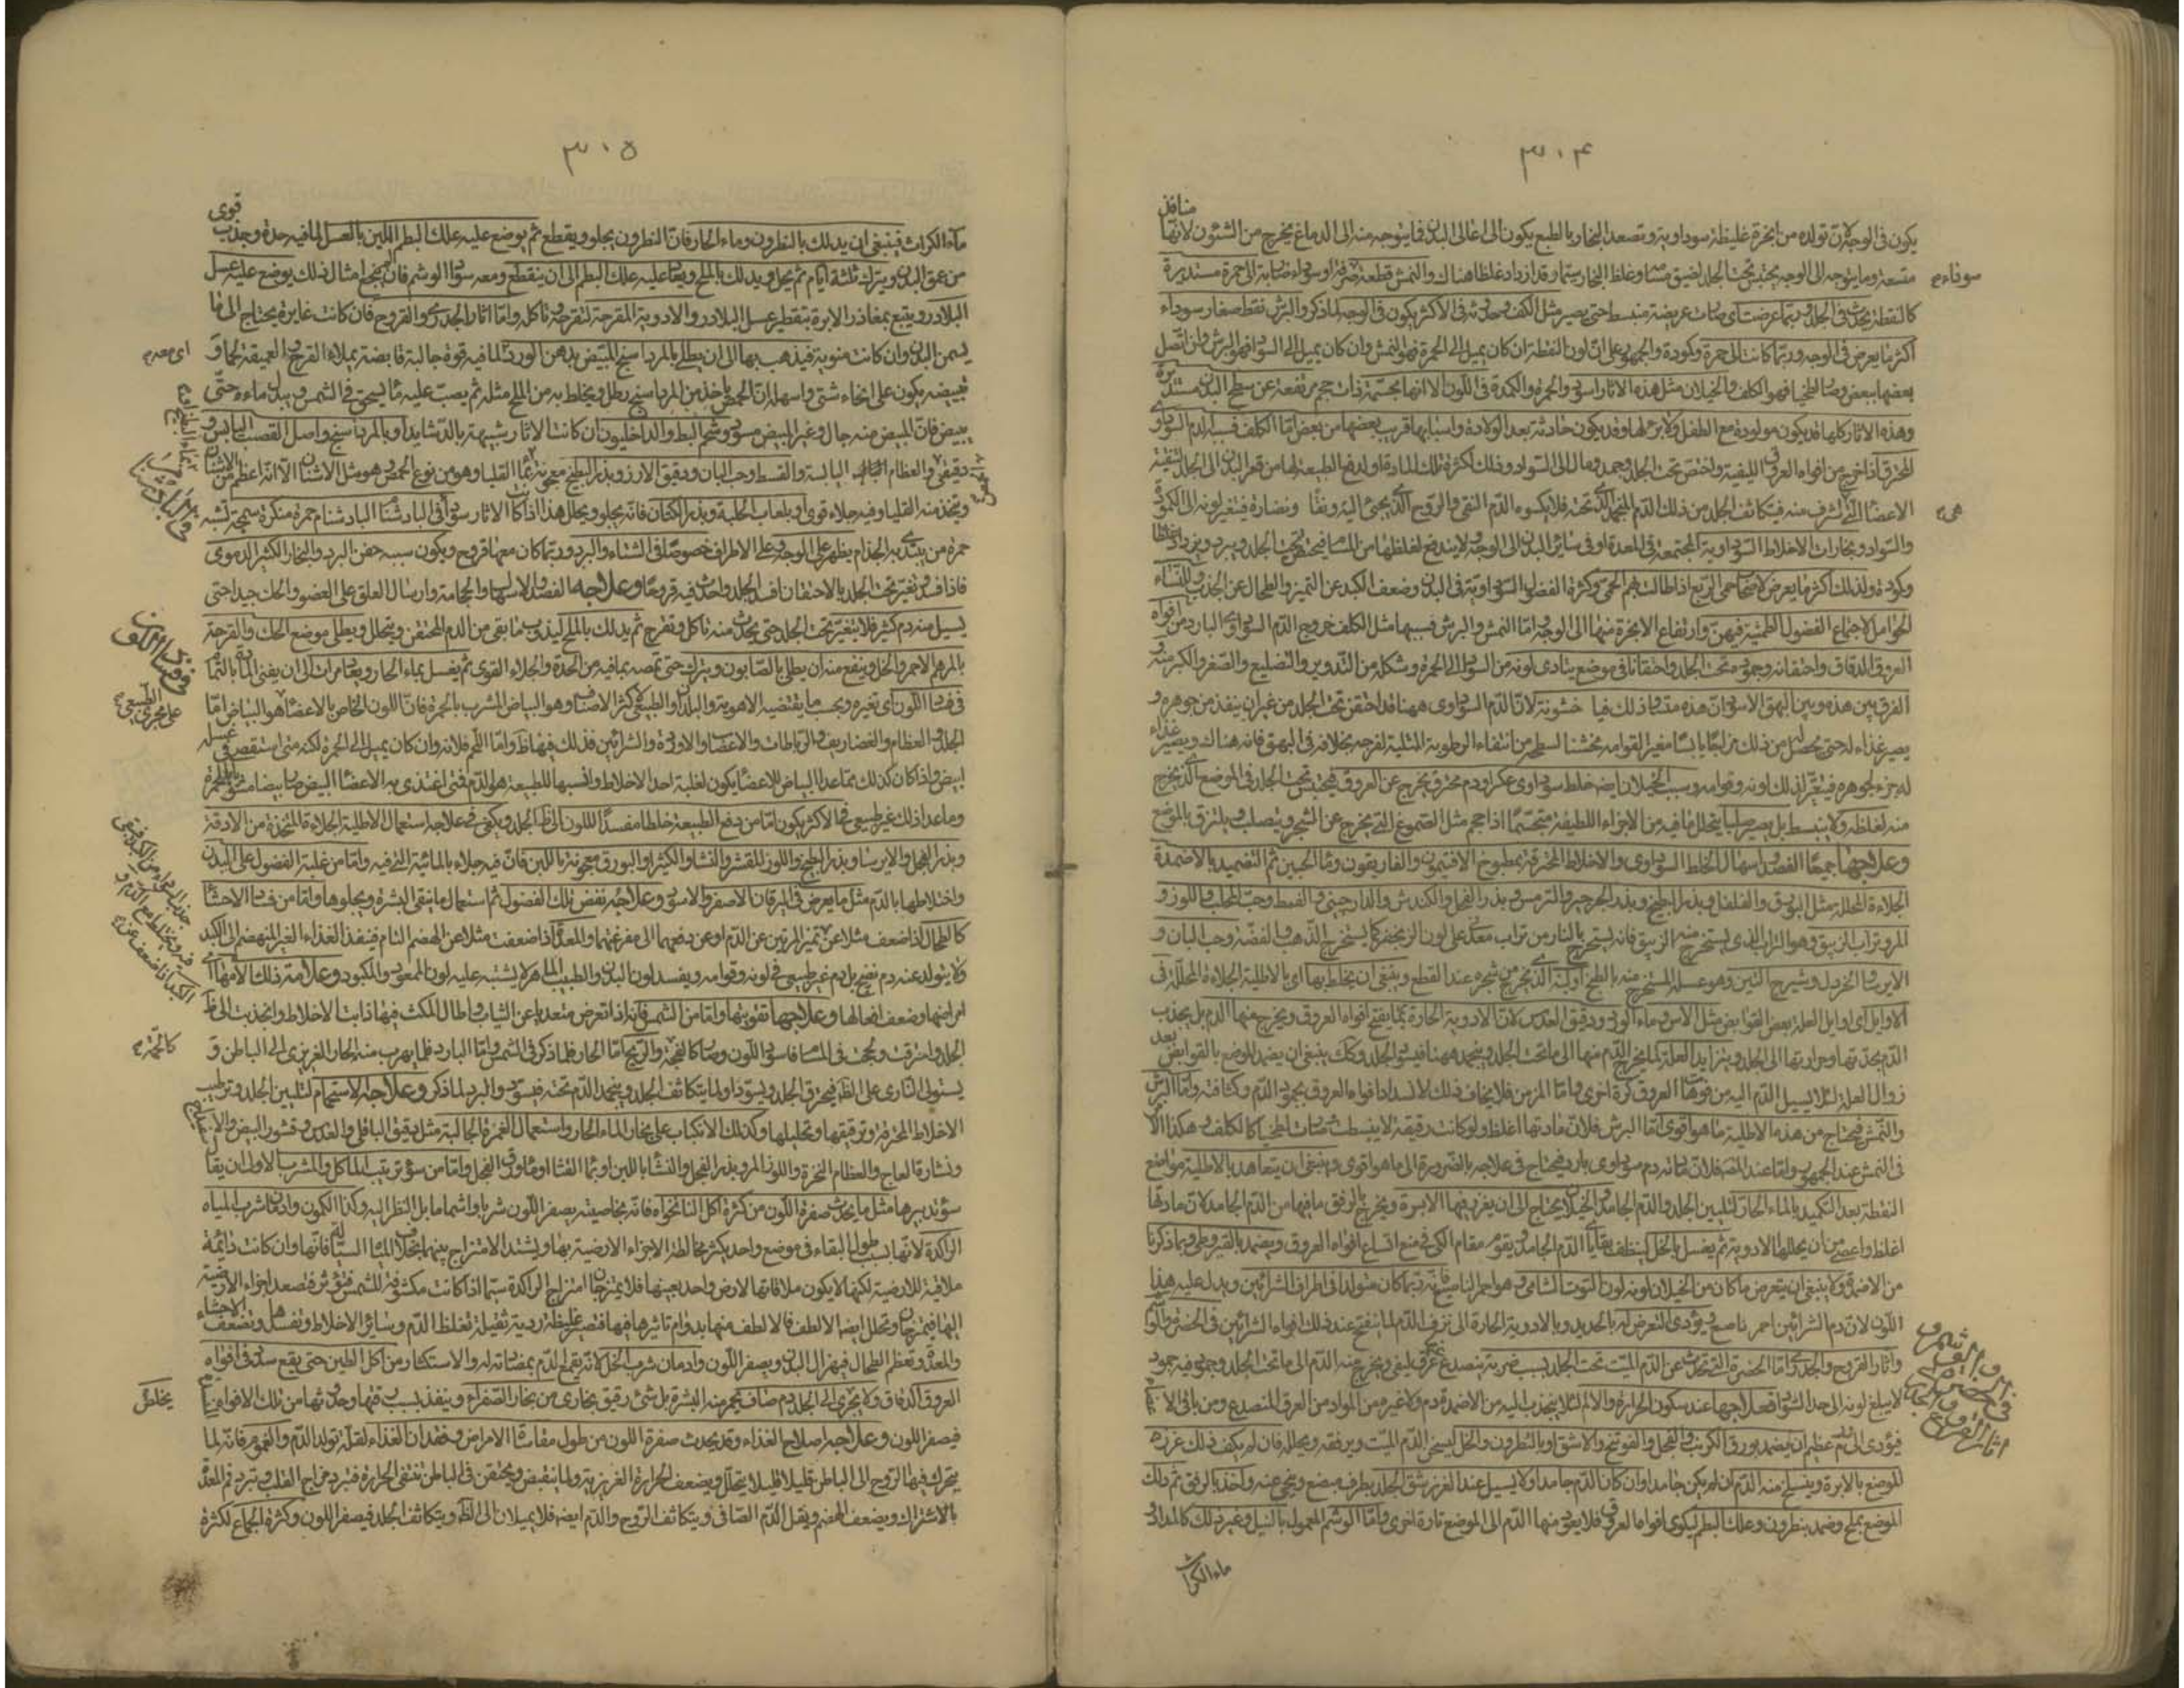 ٣٠۴
يكون فى الوجه لان تولده من ابخرة غليظة سوداوية وتصعد البخار بالطبع يكون الى اعالى البدن فما يتوجه منه الى الدماغ يخرج من الشئون لانها منافذ
متسعة وما يتوجه الى الوجه يحتبس تحت الجلد لضيق وغلظ البخار سيما وقد ازداد غلظا هناك والنمش قطعة او سوداء الى حمرة مستديرة
كالنقطة يحدث فى الجلد وربما عرضت اى عريضة منبسطة حتى يصير مثل الكلف وحدوثه فى الاكثر يكون فى الوجه لما ذكر والبرش نقط صغار سوداء
اكثر ما يعرض فى الوجه وربما كانت الى حمرة وكمودة والجمهور على ان لون النقطة ان كان يميل الى الحمرة فهو النمش وان كان يميل الى السواد فهو البرش وان اتصل
بعضها ببعض وصار لطخيا فهو الكلف والخيلان مثل هذه الاثار اسود والحمرة والكمدة فى اللون الا انها مجسمة ذات حجم مرتفعة عن سطح البدن مستديرة
وهذه الاثار كلها قد يكون مولودة مع الطفل وقد يكون حادثة بعد الولادة واسبابها قريب بعضها من بعض اما الكلف فسببه الدم السوداوى
المحترق اذا خرج من افواه العروق الليفية واحتقن تحت الجلد وجمد ومال الى السواد وذلك لكثرة تلك المادة او لدفع الطبيعة لها من قعر البدن الى الجلد لتنقية
الاعضاء التى اشرف منه فيتكاثف الجلد من ذلك الدم المنجمد الذى تحته فلا يكسوه الدم النقى والروح الذى يجئ اليه رونقا ونضارة فيتغير لونه الى الكمودة
والسواد وبخارات الاخلاط السوداوية المجتمعة فى المعدة او فى سائر البدن الى الوجه لا يندفع لغلظها من المسام فيحتقن تحت الجلد ويبرد ويزداد غلظا
وكمودة ولذلك اكثر ما يعرض لاصحاب حمى الربع اذا طالت بهم الحمى وكثرة الفضول السوداوية فى البدن وضعف الكبد عن التميز والطحال عن الجذب وللنساء
الحوامل لاجتماع الفضول الطمثية فيهن وارتفاع الابخرة منها الى الوجه واما النمش والبرش فسببهما مثل الكلف خروج الدم السوداوى البارد من افواه
العروق الدقاق واحتقانه وجموده تحت الجلد واحتقانا فى موضع يتادى لونه من السواد الى الحمرة وشكله من التدوير والتضليع والصغر والكبر منه و
الفرق بين هذه وبين البهق الاسود ان هذه ملساء وذلك فيها خشونة لان الدم السوداوى ههنا قد احتقن تحت الجلد من غير ان ينفذ من جوهره و
يصير غذاء له حتى يحصل من ذلك مزاجا يابسا مغير القوامه مخشنا لسطحه من انتفاء الرطوبة المثلية لفرجه بخلافه فى البهق فانه هناك ويصير غذاء
له جزء لجوهره فيتغير لذلك لونه وقوامه وسبب الخيلان ايضا خلط سوداوى عكر او دم محترق يخرج عن العروق فيحتبس تحت الجلد فى الموضع الذى يخرج
منه لغلظه ولا ينبسط بل يصير صلبا يتحلل ما فيه من الاجزاء اللطيفة متجسما اذا حجم مثل الصموغ التى يخرج عن الشجر ويتصلب ويلتزق بالموضع
وعلاجها جميعا الفصد واسهال الخلط السوداوى والاخلاط المحترقة بمطبوخ الافتيمون والغاريقون وماء الجبن ثم التضميد بالاضمدة
الجلاءة المحللة مثل البورق والفلفل وبذر البطيخ وبذر الجرجير والترمس وبذر الفجل والكندش والدارچينى والقسط وحب المحلب واللوز و
المر وتراب الزيبق وهو التراب الذى يستخرج منه الزيبق فانه يستخرج بالنار من تراب معدنى على لون الزنجفر كما يستخرج الذهب والفضة وحب البان و
الايرسا والخردل وشيرج التين وهو عسله المستخرج منه بالطبخ او لبنه الذى يخرج من شجره عند القطع وينبغى ان يخلط بها اى بالاطلية الجلاءة المحللة فى
الاوايل اى اوايل العلة بعض القوابض مثل الاس وماء الورد ودقيق العدس لان الادوية الحارة ربما يفتح افواه العروق ويخرج منها الدم بل يجذب
الدم بحدتها وحرارتها الى الجلد ويزيد العلة لما يخرج الدم منها الى ما تحت الجلد ويجمد ههنا فيسود الجلد وكذلك ينبغى ان يضمد الموضع بالقوابض بعد
زوال العلة لئلا يسيل الدم اليه من فوهات العروق كرة اخرى واما المزمن فلا يخاف ذلك لانسداد افواه العروق بجمود الدم وكثافته واما البرش
والنمش فيحتاج من هذه الاطلية ما هو اقوى اما البرش فلان مادتها اغلظ ولو كانت رقيقة لانبسطت وصارت لطخيا كالكلف وهكذا
فى النمش عند الجمهور واما عند المص فلان مادته دم سوداوى بارد فيحتاج فى علاجه بالضرورة الى ما هو اقوى وينبغى ان يتعاهد بالاطلية مواضع
النقطة بعد التكميد بالماء الحار لتليين الجلد والدم الجامد والخيلان يحتاج الى ان يغرز فيها الابرة ويخرج بالرفق ما فيها من الدم الجامد لان مادتها
اغلظ واعصى من ان يحللها الادوية ثم يغسل بالخل لينظف بقايا الدم الجامد ويقوم مقام الكى فى منع اتساع افواه العروق ويضمد بالقيروطى وما ذكرنا
من الاضمدة ولا ينبغى ان يتعرض ما كان من الخيلان لونه لون التوت الشامى وهو احمر الناصع فانه ربما كان متولدا فى اطراف الشرائين ويدل عليه هذا
اللون لان دم الشرائين احمر ناصع ويؤدى التعرض له بالحديد وبالادوية الحارة الى نزف الدم لما ينفتح عند ذلك افواه الشرائين فى الخضرة
واثار القروح والجدرى اما الخضرة التى تحدث عن الدم الميت تحت الجلد بسبب ضربة ينصدع عرق ليفى ويخرج منه الدم الى ما تحت الجلد وجموده فيه جمود
لا يبلغ لونه الى حد السواد فعلاجها عند سكون الحرارة والالم لئلا ينجذب اليه من الاضمدة دم ولا غيره من المواد من العرق المنصدع ومن باقى
فيؤدى الى عظيم ان يضمد بورق الكرنب والفجل والفوتنج والاشق او بالنطرون والخل ليسخن الدم الميت ويرققه ويحلله فان لم يكف ذلك غرزه
الموضع بالابرة ويسيل منه الدم ان لم يكن جامدا وان كان الدم جامدا ولا يسيل عند الغرز يشق الجلد بطرف مبضع وينحى عنه واخذ بالرفق ثم دلك
الموضع بملح وضمد بنطرون وعلك البطم ليكوى افواه العروق فلا يعود منها الدم الى الموضع تارة اخرى واما الوشم المعمول بالنيل وغير ذلك كالمداد و
ماء الكراث
سوداء
هى
فى
٣٠۵
ماء الكراث فينبغى ان يدلك بالنطرون وماء الحار فان النطرون يجلو ويقطع ثم يوضع عليه علك البطم اللين بالعسل لما فيه حدة وجذب قوى
من عمق البدن ويترك ثلثة ايام ثم يحل ويدلك بالملح ويعاد عليه علك البطم الى ان ينقطع ومعه سواد الوشم فان لم ينجح امثال ذلك يوضع عليه عسل
البلادر ويتبع بمغاذر الابرة بتقطير عسل البلادر والادوية المقرحة لتقرحه وتاكله واما اثار الجدرى والقروح فان كانت غايرة يحتاج الى ما
يسمن البدن وان كانت منوية فيذهب بها الى ان يطلى بالمرداسنج المبيض بدهن الورد لما فيه قوة جالبة قابضة يملاء القروح العميقة لحما و
تبييضه يكون على انحاء شتى واسهله ان ياخذ من المرداسنج رطل ويخلط به من الملح مثله ثم يصب عليه ماء يسحق فى الشمس ويبدل ماءه حتى
يبيض فان المبيض منه جال وغير المبيض مسود وشحم البط والداخليون ان كانت الاثار شبيهة بالدشابد او بالمرداسنج واصل القصب اليابس و
دقيق والعظام البالية والقسط وحب البان ودقيق الارز وبذر البطيخ معجونة بماء القليا وهو من نوع الحمض وهو مثل الاشنان الا انه اعظم من الاشنان
ويتخذ منه القليا وفيه جلاء قوى او بلعاب الحلبة وبذر الكتان فانه يجلو ويحلل هذا اذا كانت الاثار سوداء فى البادشنام البادشنام حمرة منكرة سمجة تشبه
حمرة من يبتدى به الجذام يظهر على الوجه وعلى الاطراف خصوصا فى الشتاء والبرد وربما كان معها قروح ويكون سببه حقن البرد والبخار الكثير الدموى
فاذا تغير تحت الجلد بالاحتقان افسد الجلد واحدث فيه قروحا وعلاجه الفصد والاسهال والحجامة وارسال العلق على العضو والحك جيدا حتى
يسيل منه دم كثير فلا يتغير تحت الجلد حتى يحدث منه تاكل وتقرح ثم يدلك بالملح ليذوب ما بقى من الدم المحتقن ويتحلل ويطلى موضع الحك والقرحة
بالمرهم الاحمر والخل وينفع منه ان يطلى بالصابون ويترك حتى تمصه بما فيه من الحدة والجلاء القوى ثم يغسل بماء الحار ويعاد مرات الى ان يفنى المادة بالتمام
فى فساد اللون اى تغيره وبحسب ما يقتضيه الاهوية والبلدان والطبيعى فى اكثر الاصناف وهو البياض المشرب بالحمرة فان اللون الخاص بالاعضاء هو البياض اما
الجلد والعظام والغضاريف والرباطات والاعصاب والاوردة والشرائين فذلك فيها ظ واما اللحم فلانه وان كان يميل الى الحمرة لكنه متى استقصى فى غسله
ابيض واذا كان كذلك بما عدا البياض للاعضاء يكون لغلبة احد الاخلاط وانسبها للطبيعة هو الدم فمتى اغتذى به الاعضاء البيض صار بيضا مشوبا بالحمرة
وما عدا ذلك غير طبيعى فى الاكثر يكون اما من دفع الطبيعة خلطا مفسدا للون الى ظ الجلد ويكفى فى علاجه استعمال الاطلية الجلاءة المتخذة من الادقة
وبذر الفجل والايرسا وبذر البطيخ واللوز المقشر والنشا والكثيرا والبورق معجونة باللبن فان فيه جلاء بالمائية التى فيه واما من غلبة الفضول على البدن
واختلاطها بالدم مثل ما يعرض فى اليرقان الاصفر والاسود وعلاجه نفض تلك الفضول ثم استعمال ما ينقى البشرة ويجلوها واما من فساد الاحشاء
كالطحال اذا ضعف مثلا عن تميز المرتين عن الدم او عن دفعهما الى مفرغتها والمعدة اذا ضعفت مثلا عن الهضم التام فينفذ الغذاء الغير المنهضم الى الكبد
ولا يتولد عنه دم نضيج بل دم غير طبيعى فى لونه وقوامه ويفسد لون البدن والطبيب الماهر لا يشتبه عليه لون الممعود والمكبود وعلامة ذلك الامها
امراضها وضعف افعالها وعلاجها تقويتها واما من الشمس فانه اذا تعرض متعد باعن الثياب واطال المكث فيها ذابت الاخلاط وانجذبت الى ظ
الجلد واحترقت ولججت فى المسام فاسود اللون وصار كالفحمة والريح اما الحار فلما ذكر فى الشمس واما البارد فلما يهرب منه الحار الغريزى الى الباطن و
يستولى النارى على الظ فيحرق الجلد ويسود او لما يتكاثف الجلد وينجمد الدم تحته فيسود والبرد لما ذكر وعلاجه الاستحمام لتليين الجلد وترطيب
الاخلاط المحرقة وترقيقها وتحليلها وكذلك الانكباب على بخار الماء الحار واستعمال الغمرة الجالبة مثل دقيق الباقلى والعدس وقشور البيض
ونشارة العاج والعظام النخرة واللوز المر وبذر الفجل والنشا باللبن او بماء القثا او ماء ورق الفجل واما من سوء ترتيب الماكل والمشرب الاولى ان يقال
سوء تدبيرها مثل ما يحدث صفرة اللون من كثرة اكل النانخواه فانه بخاصيته يصفر اللون شربا واشماما بل النظر اليه وكذا الكمون وادمان شرب المياه
الراكدة لانها بسبب طول البقاء فى موضع واحد يكثر مخالطة الاجزاء الارضية بها ويشتد الامتزاج بينهما بخلاف المياه السيالة فانها وان كانت دائمة
ملاقية للارضية لكنها لا يكون ملاقاتها الارض واحد بعينها فلا يمتزجان امتزاج الراكدة سيما اذا كانت مكشوفة للشمس فتؤثر فتصعد اجزاء الارضية
اليها فيمتزجان وتحلل ايضا الالطف فالالطف منها بدوام تاثيرها فيها فتصير غليظة ردية ثقيلة تغلظ الدم وسائر الاخلاط وتفسدها وتضعف الاحشاء
والمعدة وتعظم الطحال فيهزل البدن ويصفر اللون وادمان شرب الخل لانه يقمع الدم بمضادته له والاستكثار من اكل الطين حتى يقع سدد فى افواه
العروق الدقاق ولا يجرى الى الجلد دم صاف يحمر منه البشرة بل شئ رقيق بخارى من بخار الصفراء وينفذ بسبب رقتها وحدتها من تلك الافواه
فيصفر اللون وعلاجه اصلاح الغذاء وقد يحدث صفرة اللون من طول مقاساة الامراض وفقدان الغذاء لقلة تولد الدم والغموم فانه لما
يتحرك فيها الروح الى الباطن قليلا قليلا يتحلل ويضعف الحرارة الغريزية ولما ينقبض ويحتقن فى الباطن تنتفى الحرارة فيبرد مزاج القلب ويبرد فم المعدة
بالاشتراك ويضعف الهضم ويقل الدم الصافى ويتكاثف الروح والدم ايضا فلا يميلان الى الظ ويتكاثف الجلد فيصفر اللون وكثرة الجماع لكثرة